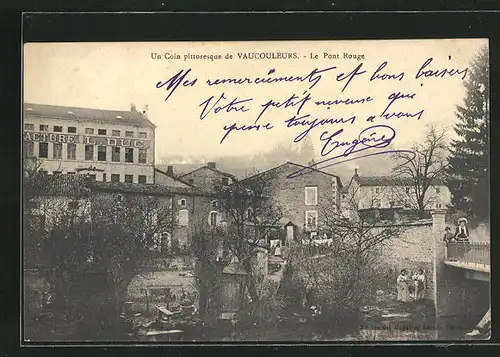 Un Coin pittoresque de VAUCOULEURS. - Le Pont Rouge
Mes remerciements et bons baisers
Votre petit neveuse que
pense toujours à vous
Eugène
ACTURE H. LADUC